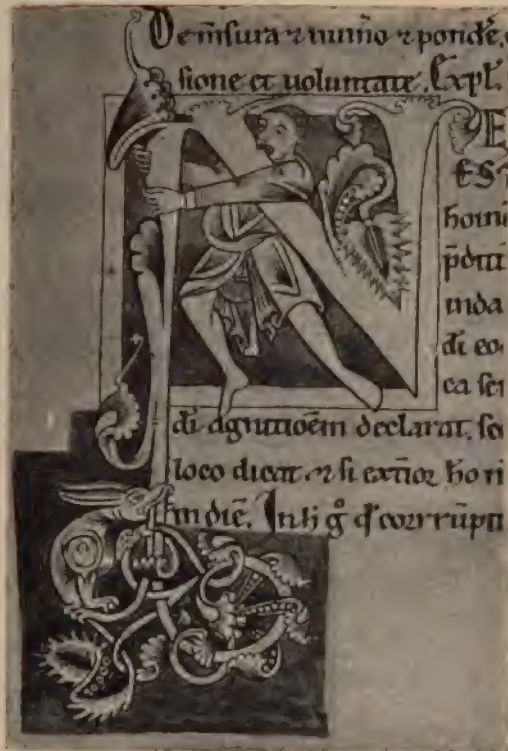 De m̄sura ⁊ num̄o ⁊ pond̄e,
sione et uoluntate. Expl̄.
N E
EST
homi
p̄diti
inda
di eo
ea sei
di agnitioēm declarat. so
loco dicat ⁊ si exti᷑or ho ri
in diē. In hi g° q̄ corrūpti